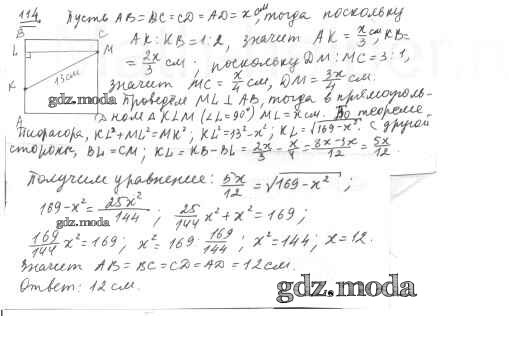 114.
Пусть AB = BC = CD = AD = x см, тогда поскольку
AK : KB = 1:2, значит AK = x/3 см, KB =
= 2x/3 см; поскольку DM : MC = 3:1,
значит MC = x/4 см, DM = 3x/4 см.
Проведём ML ⊥ AB, тогда в прямоуголь-
ном Δ KLM (∠L = 90°) ML = x см. По теореме
Пифагора, KL² + ML² = MK²; KL² = 13² - x²; KL = √169-x². С другой
стороны, BL = CM; KL = KB - BL = 2x/3 - x/4 = 8x-3x/12 = 5x/12.
Получим уравнение: 5x/12 = √169-x²;
169-x² = 25x²/144; 25/144 x² + x² = 169;
169/144 x² = 169; x² = 169 · 169/144; x² = 144; x = 12.
Значит AB = BC = CD = AD = 12 см.
Ответ: 12 см.
B C
L M
K 13см
A
gdz.moda
gdz.moda
gdz.moda